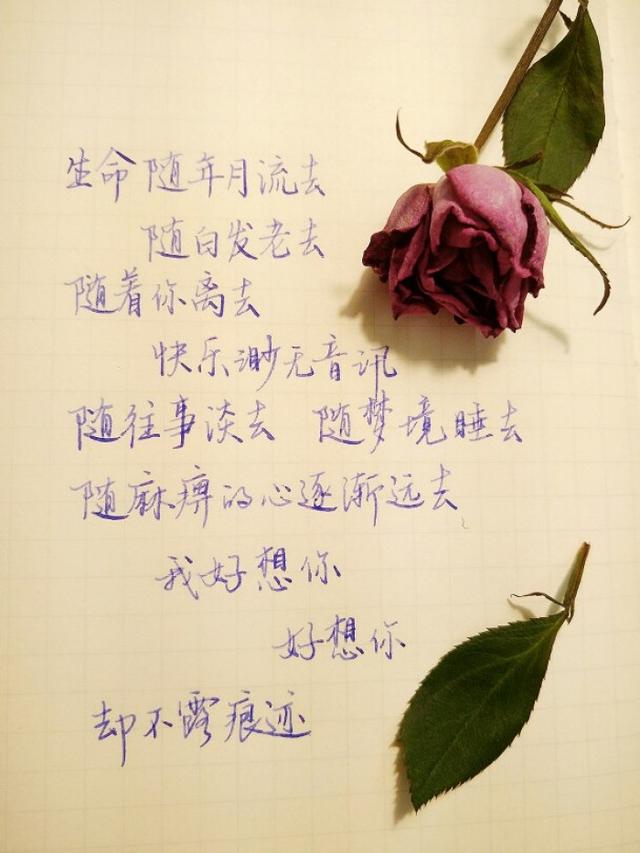 生命随年月流去
随白发老去
随着你离去
快乐渺无音讯
随往事淡去 随梦境睡去
随麻痹的心逐渐远去
我好想你
好想你
却不露痕迹